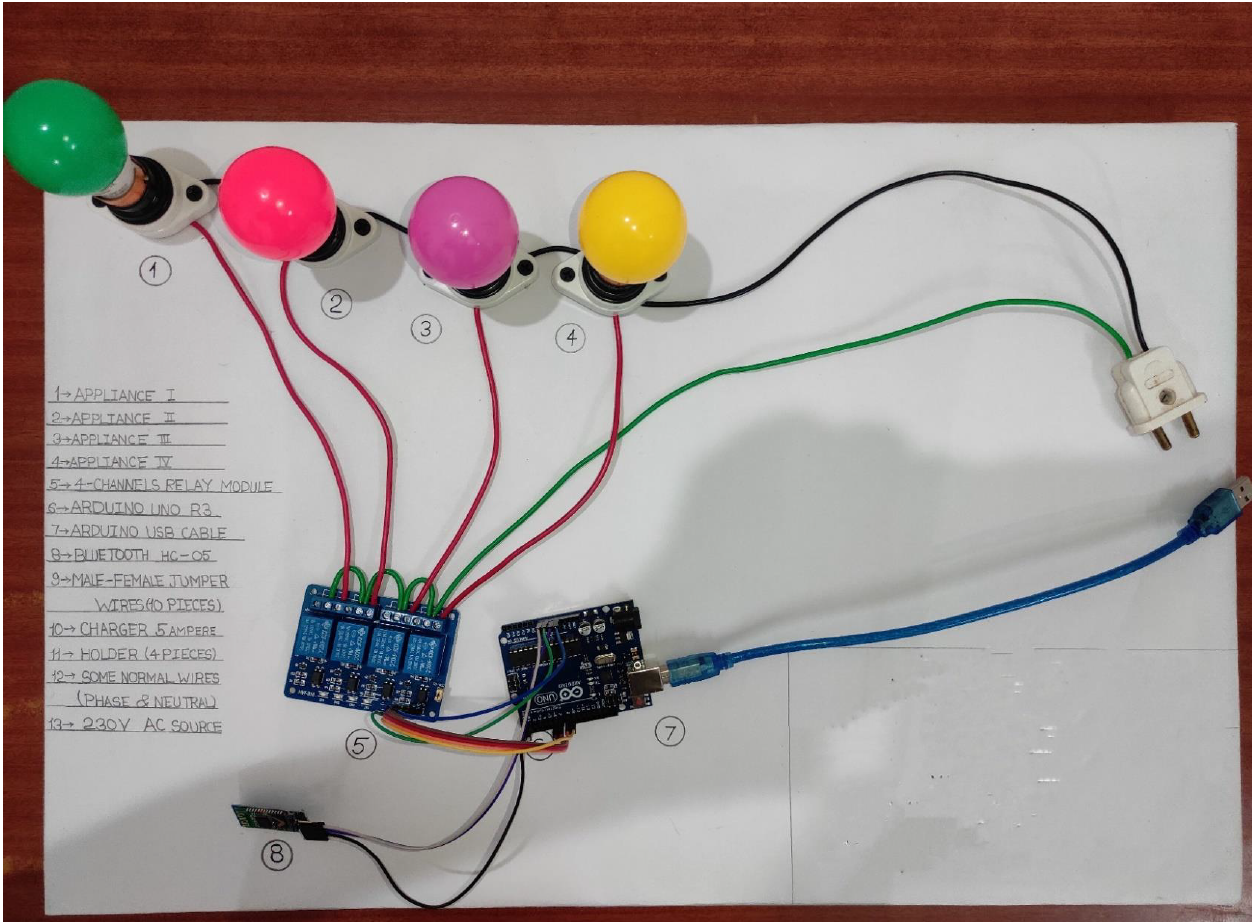 1
2
3
4
1→APPLIANCE I
2→APPLIANCE II
3→APPLIANCE III
4→APPLIANCE IV
5→4-CHANNELS RELAY MODULE
6→ARDUINO UNO R3
7→ARDUINO USB CABLE
8→BLUETOOTH HC-05
9→MALE-FEMALE JUMPER
WIRES(10 PIECES)
10→ CHARGER 5 AMPERE
11→ HOLDER (4 PIECES)
12→ SOME NORMAL WIRES
(PHASE & NEUTRAL)
13→ 230V AC SOURCE
UNO
ARDUINO
5
6
7
8